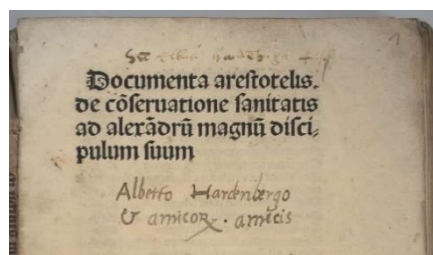 Documenta arestotelis.
de cōseruatione sanitatis
ad alexādrū magnū disci-
pulum suum
Alberto Hardenbergo
& amicoꝝ. amicis